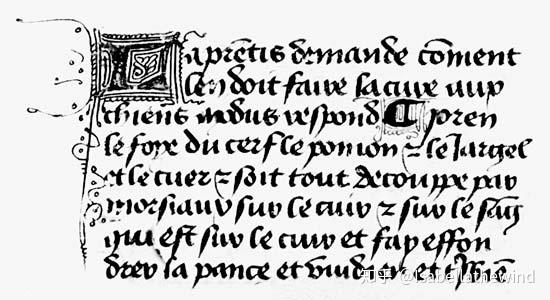 Laprẽtis demande cõment
len doit faire la cure aux
chiens modus respond ¶ pren
le foye du cerf le pomon ⁊ le jargel
et le cuer ⁊ soit tout decouppe par
morsiaux sur le cuir ⁊ sur le sãg
qui est sur le cuir et fay effon
drer la pance et vuidier et
知乎 @Isabellathewind